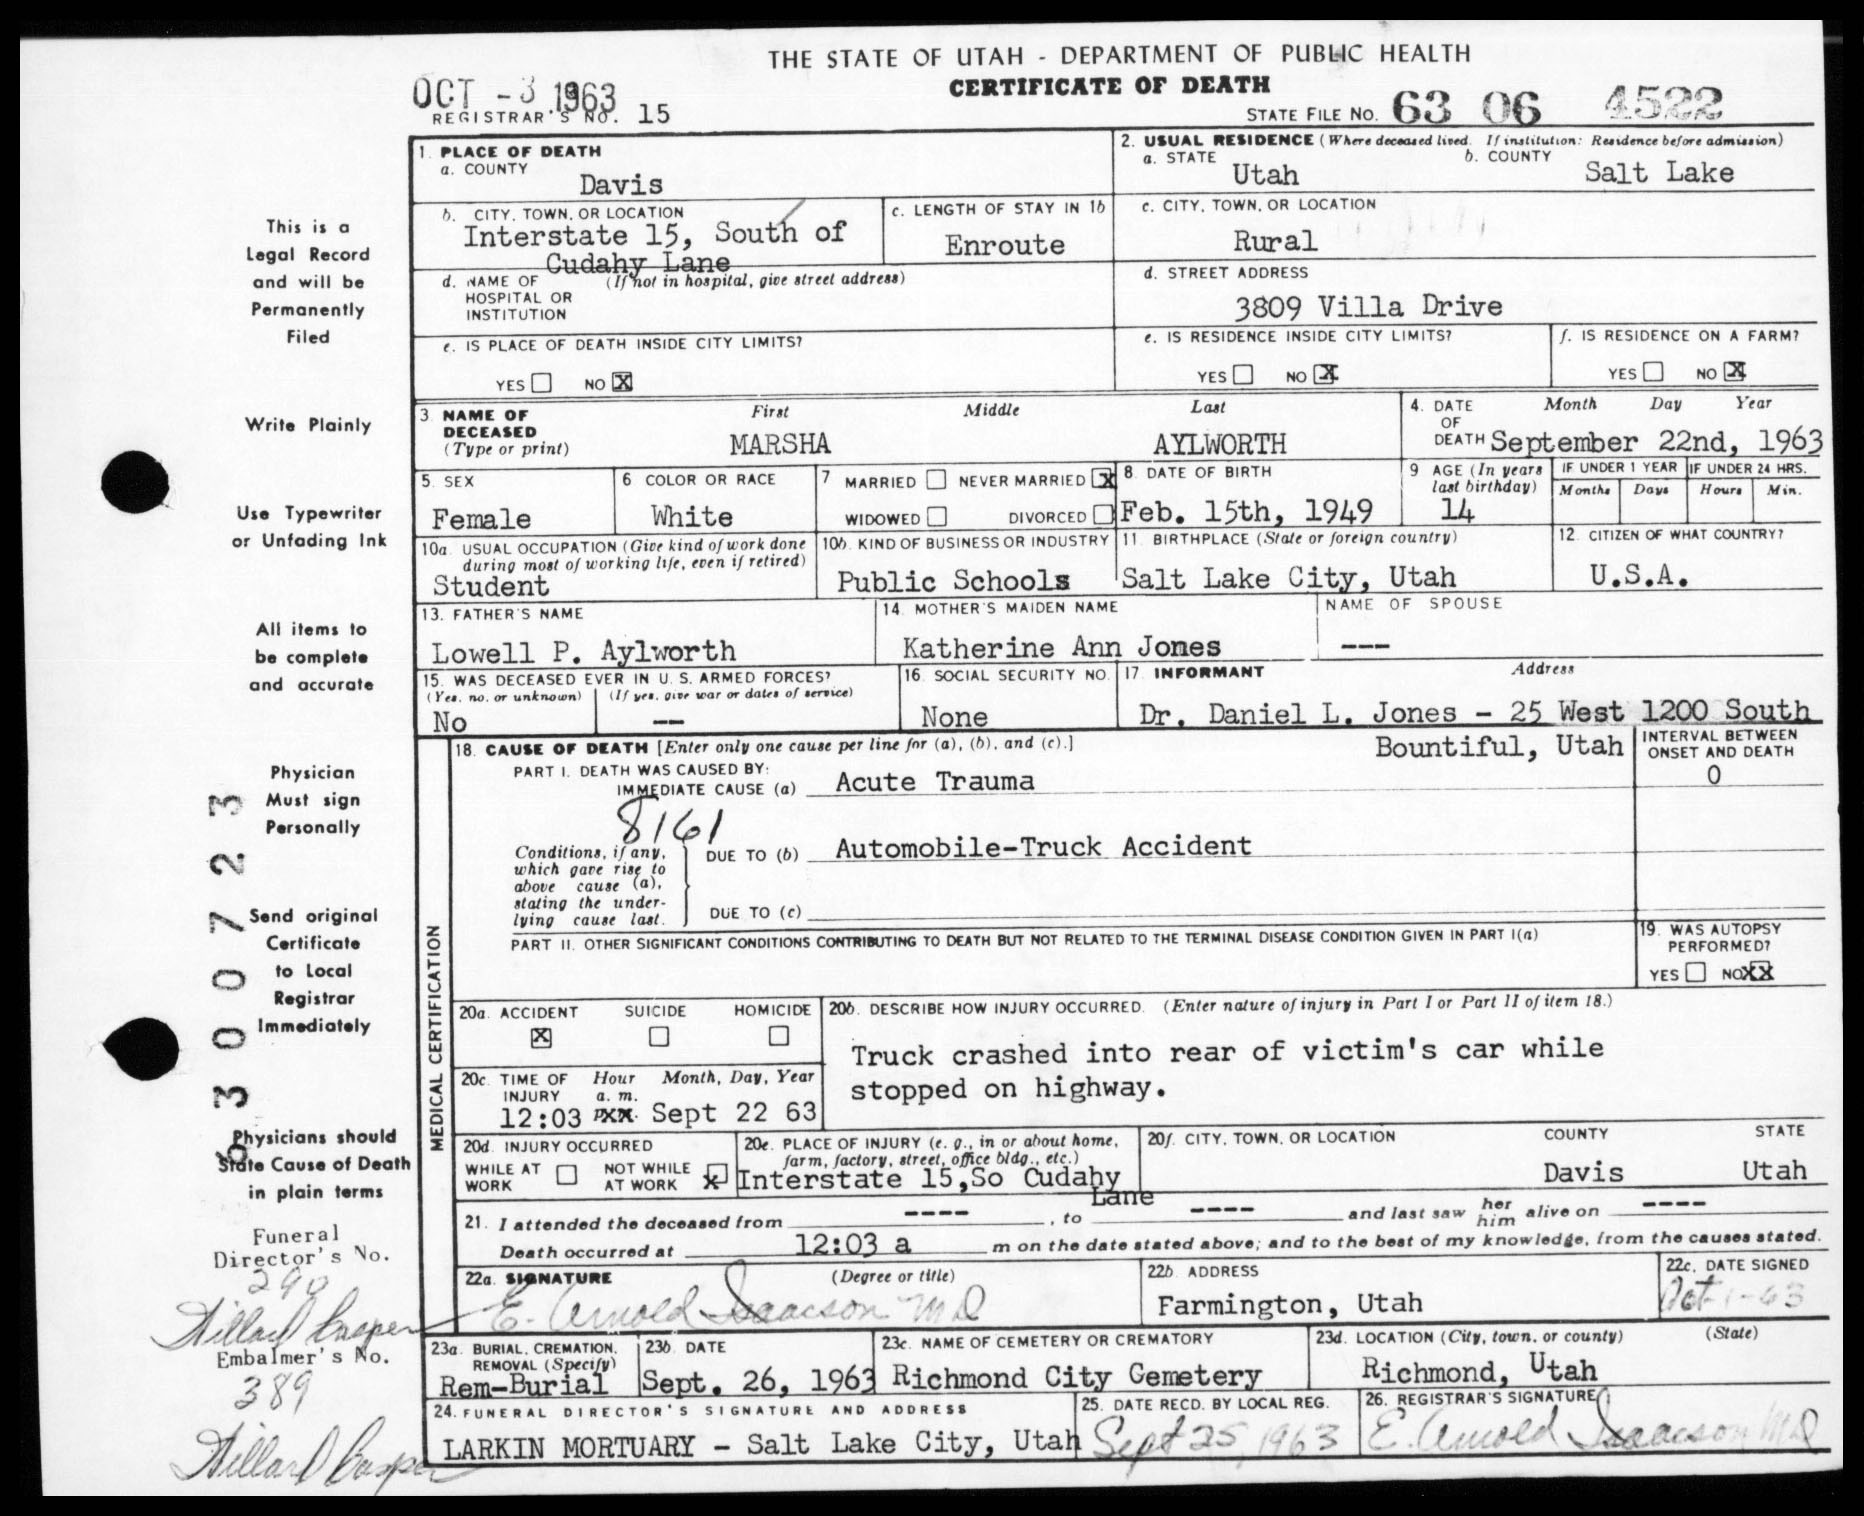 THE STATE OF UTAH - DEPARTMENT OF PUBLIC HEALTH
CERTIFICATE OF DEATH
OCT - 3 1963
REGISTRAR'S NO. 15
STATE FILE NO. 63 06 4522
1. PLACE OF DEATH
a. COUNTY
Davis
2. USUAL RESIDENCE (Where deceased lived. If institution: Residence before admission)
a. STATE
Utah
b. COUNTY
Salt Lake
b. CITY, TOWN, OR LOCATION
Interstate 15, South of
Cudahy Lane
c. LENGTH OF STAY IN 1b
Enroute
c. CITY, TOWN, OR LOCATION
Rural
d. NAME OF (If not in hospital, give street address)
HOSPITAL OR
INSTITUTION
d. STREET ADDRESS
3809 Villa Drive
e. IS PLACE OF DEATH INSIDE CITY LIMITS?
YES NO X
e. IS RESIDENCE INSIDE CITY LIMITS?
YES NO X
f. IS RESIDENCE ON A FARM?
YES NO X
3 NAME OF First Middle Last
DECEASED
(Type or print)
MARSHA AYLWORTH
4. DATE Month Day Year
OF
DEATH September 22nd, 1963
5. SEX
Female
6 COLOR OR RACE
White
7 MARRIED NEVER MARRIED X
WIDOWED DIVORCED
8. DATE OF BIRTH
Feb. 15th, 1949
9 AGE (In years
last birthday)
14
IF UNDER 1 YEAR
Months Days
IF UNDER 24 HRS.
Hours Min.
10a. USUAL OCCUPATION (Give kind of work done
during most of working life, even if retired)
Student
10b. KIND OF BUSINESS OR INDUSTRY
Public Schools
11. BIRTHPLACE (State or foreign country)
Salt Lake City, Utah
12. CITIZEN OF WHAT COUNTRY?
U.S.A.
13. FATHER'S NAME
Lowell P. Aylworth
14. MOTHER'S MAIDEN NAME
Katherine Ann Jones
NAME OF SPOUSE
---
15. WAS DECEASED EVER IN U. S. ARMED FORCES?
(Yes, no, or unknown) (If yes, give war or dates of service)
No --
16. SOCIAL SECURITY NO.
None
17. INFORMANT Address
Dr. Daniel L. Jones - 25 West 1200 South
Bountiful, Utah
MEDICAL CERTIFICATION
18. CAUSE OF DEATH [Enter only one cause per line for (a), (b), and (c).]
PART I. DEATH WAS CAUSED BY:
IMMEDIATE CAUSE (a) Acute Trauma
INTERVAL BETWEEN
ONSET AND DEATH
0
8161
Conditions, if any,
which gave rise to
above cause (a),
stating the under-
lying cause last.
DUE TO (b) Automobile-Truck Accident
DUE TO (c)
PART II. OTHER SIGNIFICANT CONDITIONS CONTRIBUTING TO DEATH BUT NOT RELATED TO THE TERMINAL DISEASE CONDITION GIVEN IN PART I(a)
19. WAS AUTOPSY
PERFORMED?
YES NO XX
20a. ACCIDENT SUICIDE HOMICIDE
X
20b. DESCRIBE HOW INJURY OCCURRED. (Enter nature of injury in Part I or Part II of item 18.)
Truck crashed into rear of victim's car while
stopped on highway.
20c. TIME OF Hour Month, Day, Year
INJURY a. m.
12:03 pxx. Sept 22 63
20d. INJURY OCCURRED
WHILE AT WORK NOT WHILE AT WORK X
20e. PLACE OF INJURY (e. g., in or about home,
farm, factory, street, office bldg., etc.)
Interstate 15,So Cudahy
Lane
20f. CITY, TOWN, OR LOCATION COUNTY STATE
Davis Utah
21. I attended the deceased from ----, to ---- and last saw her him alive on ----
Death occurred at 12:03 a m on the date stated above; and to the best of my knowledge, from the causes stated.
22a. SIGNATURE (Degree or title)
E. Arnold Isaacson MD
22b. ADDRESS
Farmington, Utah
22c. DATE SIGNED
Oct-1-63
23a. BURIAL, CREMATION,
REMOVAL (Specify)
Rem-Burial
23b. DATE
Sept. 26, 1963
23c. NAME OF CEMETERY OR CREMATORY
Richmond City Cemetery
23d. LOCATION (City, town, or county) (State)
Richmond, Utah
24. FUNERAL DIRECTOR'S SIGNATURE AND ADDRESS
LARKIN MORTUARY - Salt Lake City, Utah
25. DATE RECD. BY LOCAL REG.
Sept 25, 1963
26. REGISTRAR'S SIGNATURE
E. Arnold Isaacson MD
This is a
Legal Record
and will be
Permanently
Filed
Write Plainly
Use Typewriter
or Unfading Ink
All items to
be complete
and accurate
Physician
Must sign
Personally
Send original
Certificate
to Local
Registrar
Immediately
Physicians should
State Cause of Death
in plain terms
6300723
Funeral
Director's No.
290
Willard Casper
Embalmer's No.
389
Willard Casper